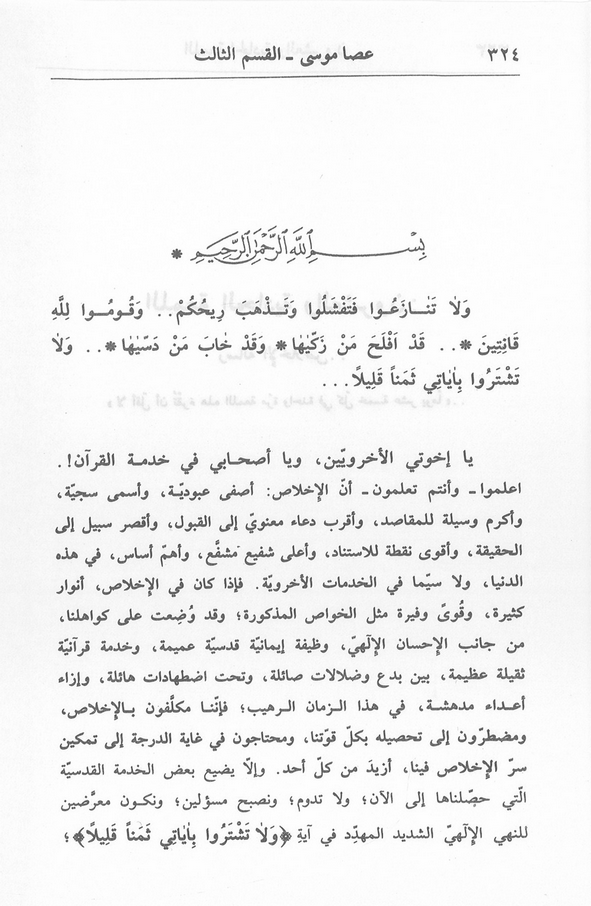 ٣٢٤ عصا موسى ـ القسم الثالث
بِسْــــمِ ٱللهِ ٱلرَّحْمٰنِ ٱلرَّحِيمِ *
وَلاٰ تَنٰــازَعُــوا فَتَفْشَلُوا وَتَــذْهَبَ رِيحُكُمْ.. وَقُـومُــوا لِلّٰهِ
قَانِتِينَ *.. قَدْ اَفْلَحَ مَنْ زَكّٰيهٰا* وَقَدْ خٰابَ مَنْ دَسّٰيهٰا*.. وَلاٰ
تَشْتَرُوا بِاٰيٰاتِي ثَمَناً قَلِيلًا...
يا إخوتي الأخرويّين، ويا أصحـابي في خدمـة القرآن!.
اعلموا ـ وأنتم تعلمون ـ أنّ الإخلاص: أصفى عبوديّـة، وأسمى سجيّة،
وأكرم وسيلة للمقاصد، وأقرب دعاء معنويّ إلى القبول، وأقصر سبيل إلى
الحقيقة، وأقوى نقطة للاستناد، وأعلى شفيع مَشفَّع، وأهمّ أساس، في هذه
الدنيا، ولا سيّما في الخدمات الأخرويّة. فإذا كان في الإخلاص، أنوار
كثيرة، وقُوىً وفيرة مثل الخواص المذكورة؛ وقد وُضِعت على كواهلنا،
من جانب الإحسان الإلٰهيّ، وظيفة إيمانيّة قدسيّة عميمة، وخدمة قرآنيّة
ثقيلة عظيمة، بين بدع وضلالات صائلة، وتحت اضطهادات هائلة، وإزاء
أعـداء مدهشـة، في هـذا الـزمان الـرهيب؛ فإنّنـا مكلَّفون بـالإخلاص،
ومضطرّون إلى تحصيله بكلّ قوّتنا، ومحتاجون في غاية الدرجة إلى تمكين
سرّ الإخلاص فينا، أزيدَ من كلّ أحد. وإلاّ يضيع بعض الخدمة القدسيّة
الّتي حصّلناها إلى الآن؛ ولا تدوم؛ ونصبح مسؤلين؛ ونكـون معرَّضين
للنهي الإلٰهيّ الشديد المهدِّد في آيةِ ﴿وَلاٰ تَشْتَرُوا بِاٰيٰاتِي ثَمَناً قَلِيلًا﴾؛